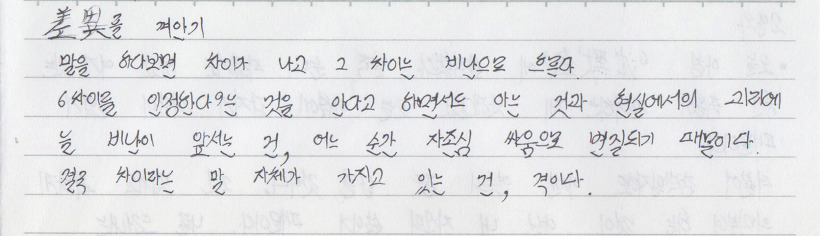 差異를 껴안기
말을 하다보면 차이가 나고 그 차이는 비난으로 흐른다
‘차이를 인정한다’는 것을 안다고 하면서도 아는 것과 현실에서의 괴리에
늘 비난이 앞서는 건, 어느 순간 자존심 싸움으로 변질되기 때문이다.
결국 차이라는 말 자체가 가지고 있는 건, 격이다.